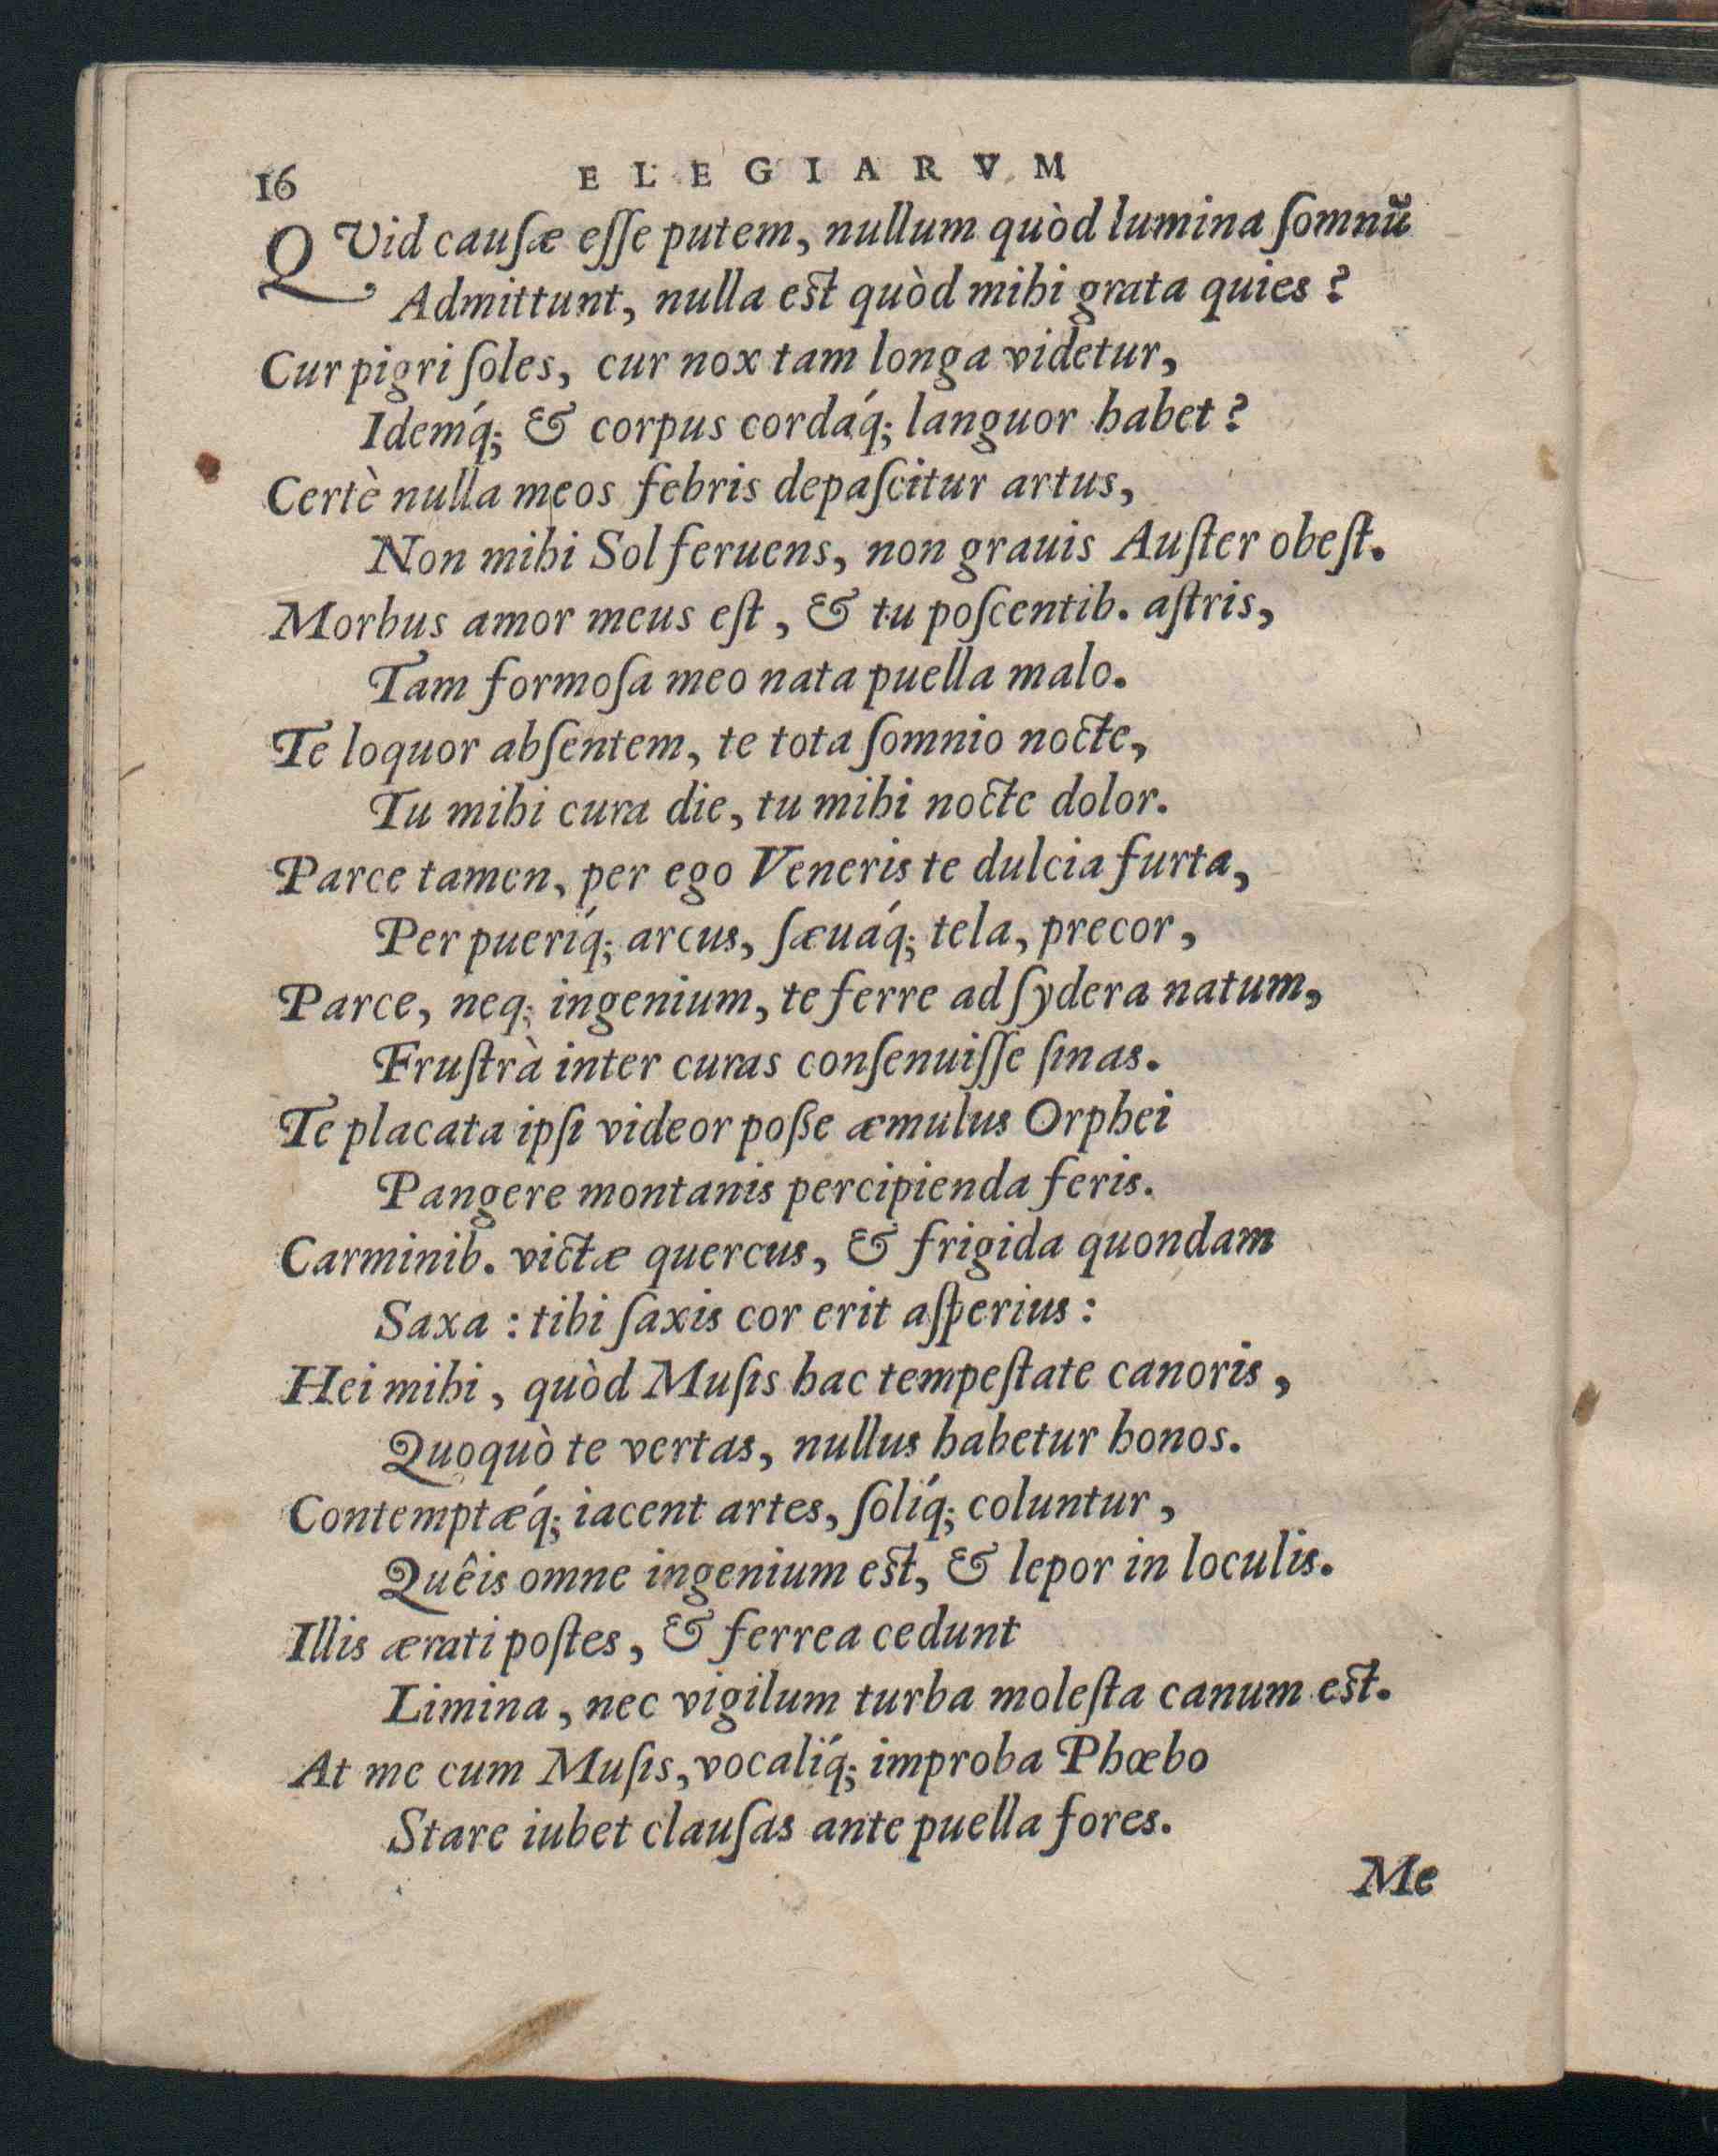 16 ELEGIARVM
QVid cauſæ eſſe putem, nullum quòd lumina ſomnũ
Admittunt, nulla eſt quòd mihi grata quies?
Cur pigri ſoles, cur nox tam longa videtur,
Idemq́; & corpus cordaq́; languor habet?
Certè nulla meos febris depaſcitur artus,
Non mihi Sol feruens, non grauis Auſter obeſt.
Morbus amor meus eſt, & tu poſcentib. aſtris,
Tam formoſa meo nata puella malo.
Te loquor abſentem, te tota ſomnio nocte,
Tu mihi cura die, tu mihi nocte dolor.
Parce tamen, per ego Veneris te dulcia furta,
Per pueriq́; arcus, ſæuaq́; tela, precor,
Parce, neq; ingenium, te ferre ad ſydera natum,
Fruſtrà inter curas conſenuiſſe ſinas.
Te placata ipſi videor poße æmulus Orphei
Pangere montanis percipienda feris.
Carminib. victæ quercus, & frigida quondam
Saxa: tibi ſaxis cor erit aſperius:
Hei mihi, quòd Muſis hac tempeſtate canoris,
Quoquò te vertas, nullus habetur honos.
Contemptæq́; iacent artes, ſoliq́; coluntur,
Quêis omne ingenium eſt, & lepor in loculis.
Illis ærati poſtes, & ferrea cedunt
Limina, nec vigilum turba moleſta canum eſt.
At me cum Muſis, vocaliq́; improba Phœbo
Stare iubet clauſas ante puella fores.
Me